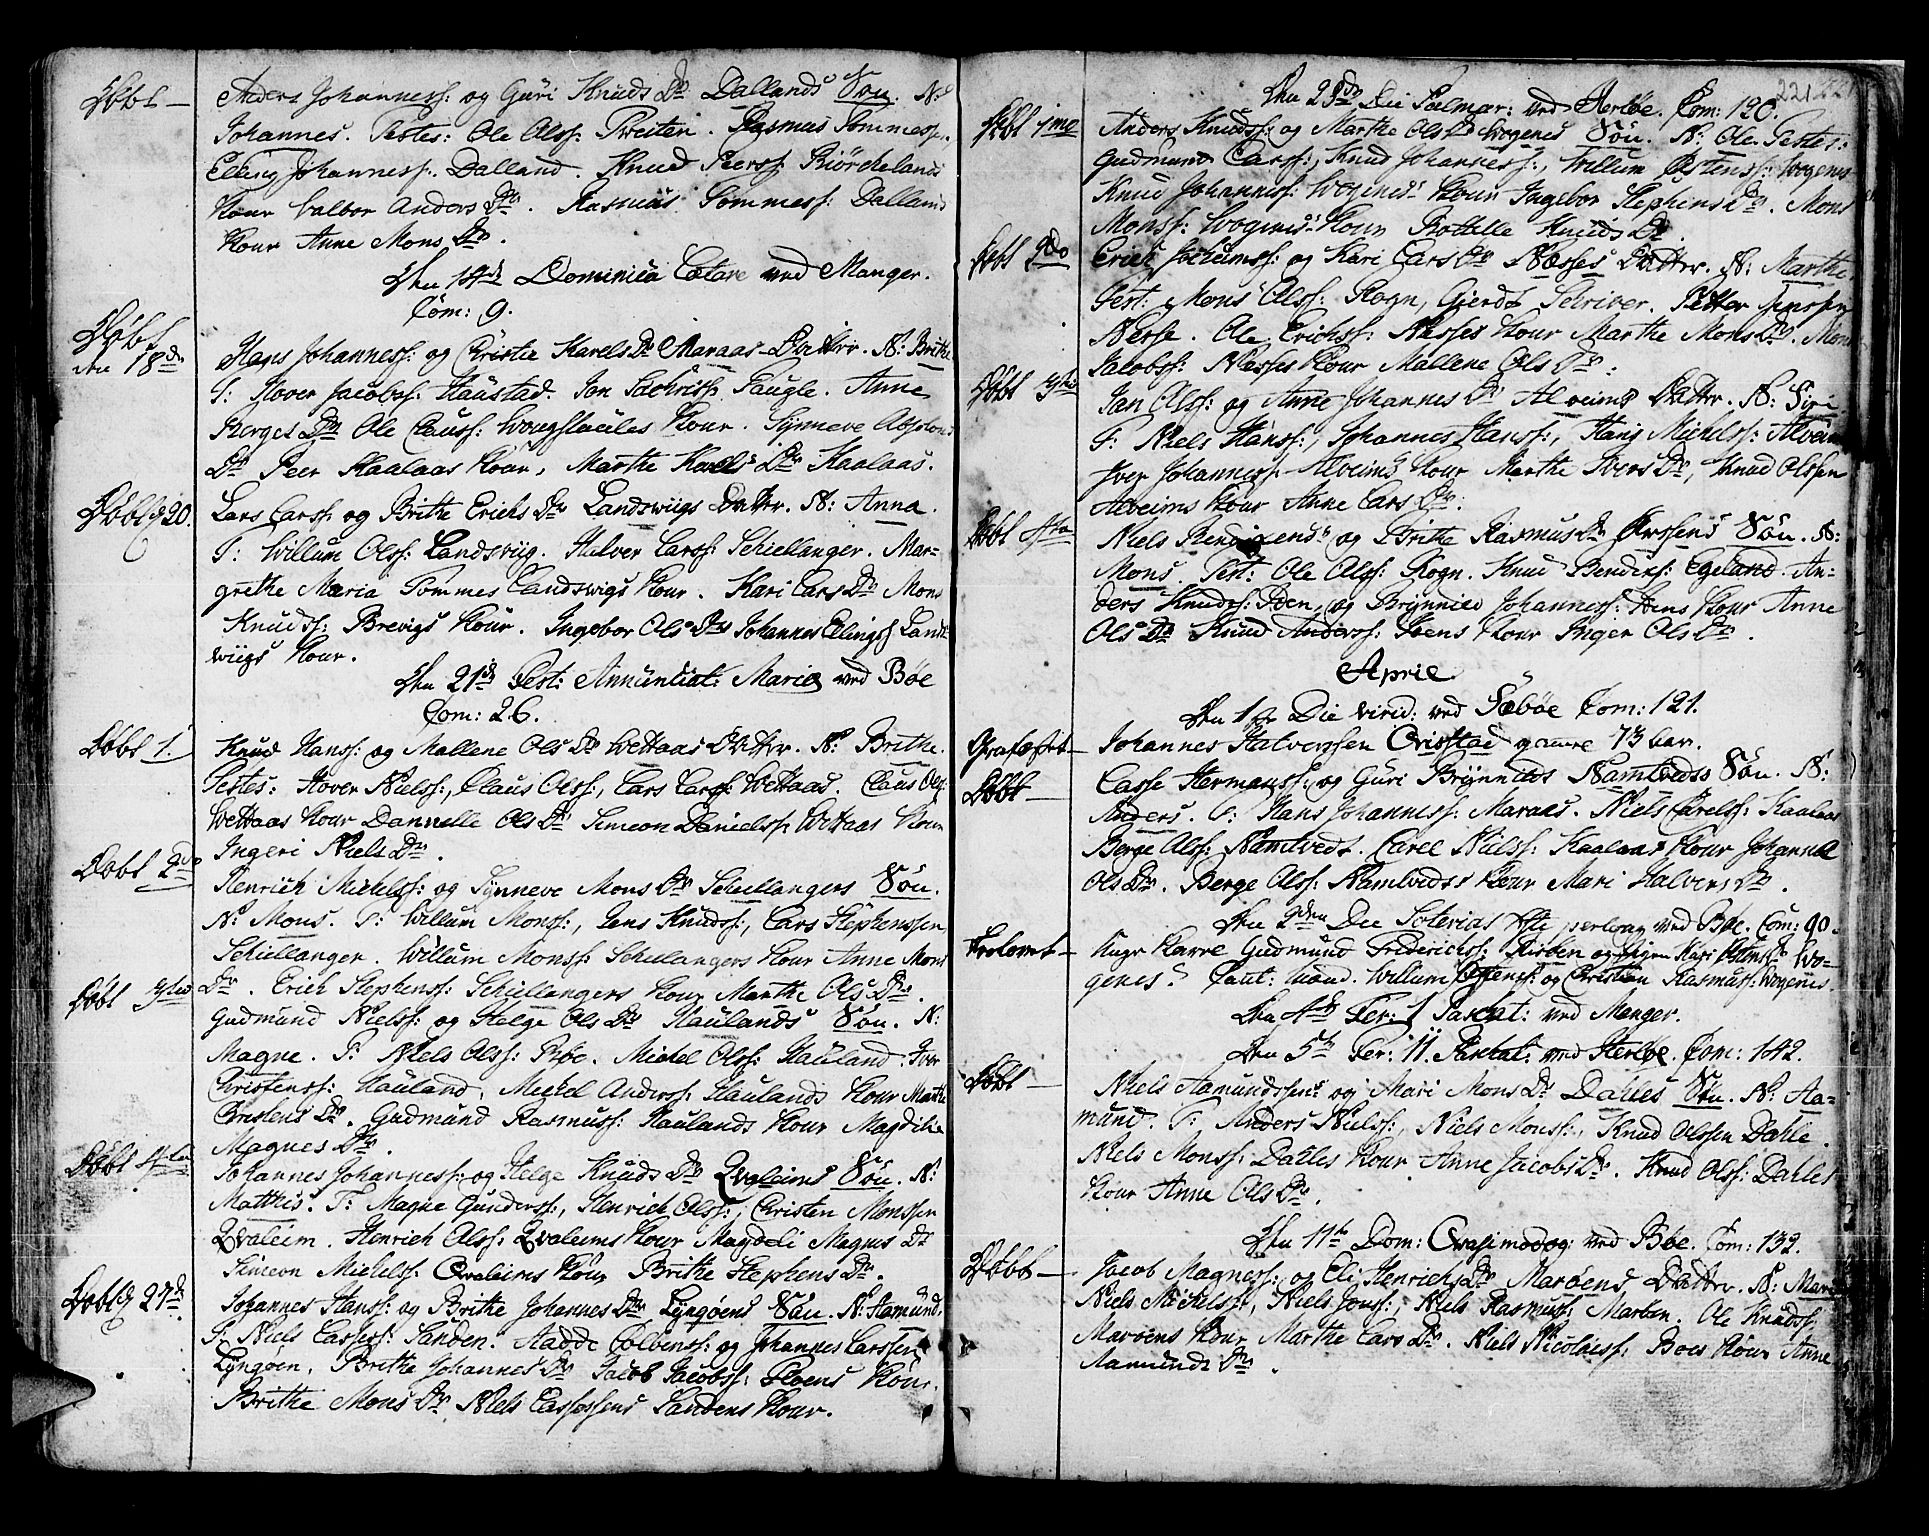 Døbt — Anders Johannesf: og Guri Knuds Dr Dallands Søn. N:
Johannes. Testes: Ole Olsf: Tveiten. Rasmus Tommesf:
Elling Johannesf. Dalland. Knud Peersf: Biörchelands
Kour Valbor Anders Dtr. Rasmus Tommesf: Dallands
Kour Anne Mons Dr.
Den 14de Dominica Lætare ved Manger.
Com: 9.
Døbt den 18de Hans Johannesf: og Christie Karels Dr Maraas Datter. N: Brithe
T: Hover Jacobsf: Haustad. Jon Sachrisf. Faugle. Anne
Berges Dtr Ole Clausf: Kour. Synneve Absolons
Dr Peer Kaalaas Kour, Marthe Karels Dtr Kaalaas.
Døbt d 20. Lars Larsf: og Brithe Erichs Dtr Landsvigs Datter. N: Anna.
T: Willum Olsf: Landsviig. Halver Larsf: Schiellanger. Mar-
grethe Maria Tommes Landsvigs Kour. Kari Lars Dr Mons
Knudsf: Brevigs Kour. Ingebor Ols Dtr Johannes Ellingsf Lands-
wiigs Kour.
Den 21de Fest: Annuntiat: Mariæ ved Bøe
Com: 26.
Døbt 1. Knud Hansf: og Mallene Ols Dr Wettaas Datter. N: Brithe.
Testes: Hover Nielsf:, Claus Olsf:, Lars Larsf: Wettaas. Claus Olsf:
Wettaas Kour Dannelle Ols Dr Simeon Danielsf: Wettaas Kour
Ingeri Niels Dr.
Døbt 2do Henrich Michelsf: og Synneve Mons Dr Schiellangers Søn.
N: Mons. T: Willum Monsf:, Jens Knudsf:, Lars Stephenssen
Schiellanger. Willum Monsf: Schellangers Kour Anne Mons
Dr. Erich Stephensf: Schiellangers Kour Marthe Ols Dr.
Døbt 3tio Gudmund Nielsf: og Helge Ols Dr Haulands Søn. N:
Magne. T: Niels Olsf: Bøe. Michel Olsf: Hauland. Iver
Christensf: Hauland, Michel Andersf: Haulands Kour Marthe
Christens Dr. Gudmund Rasmusf: Haulands Kour Magdeli
Magnes Dr.
Døbt 4to Johannes Johannesf: og Helge Knuds Dr Qvaleims Søn. N:
Matthis. T: Magne Gundersf:, Henrich Olsf:, Christen Monssen
Qvaleim. Henrich Olsf: Qvaleims Kour Magdeli Magnes Dr
Simeon Michelsf: Qvaleims Kour Brithe Stephens Dr.
Døbt d 27de Johannes Hansf: og Brithe Johannes Dtr Lyngøens Søn. N: Aamund.
T: Niels Lassesf: Sanden. Aadde Colbensf: og Johannes Larssen
Lyngøen. Brithe Johannes Dr Jacob Jacobsf: Floens Kour.
Brithe Mons Dr Niels Lassessens Sandens Kour.
221
Den 28de Die Palmar: ved Herløe. Com: 120.
Døbt 1mo Anders Knudsf: og Marthe Ols Dr Wogenes Søn. N: Ole. Testes:
Gudmund Larsf:, Knud Johannesf:, Willum Østensf: Wogenes
Knud Johannesf: Wogenes Kour Ingebor Stephens Dr. Mons
Monsf: Wogenes Kour Bothille Knuds Dr.
Døbt 2do Erich Jochumsf: og Kari Lars Dtr Næsses Datter. N: Marthe.
Test: Mons Olsf: Rogn, Gierdt Schriver. Petter Jenssen
Nesse. Ole Erichsf: Næsses Kour Marthe Mons Dr. Mons
Jacobsf: Næsses Kour Mallene Ols Dr.
Døbt 3tio Jan Olsf: og Anne Johannes Dr Alveims Datter. N: Siri.
T: Niels Hansf:, Johannes Hansf:, Hans Michelsf: Alveim
Iver Johannesf. Alveims Kour Marthe Ivers Dr, Knud Olssen
Alveims Kour Anne Lars Dr.
Døbt 4to Niels og Brithe Rasmus Dr Søn. N:
Mons. Test: Ole Olsf: Rogn. Knud Bendixf: Egeland. An-
ders Knudsf: Øen, og Brynnild Johannesf: Øens Kour Anne
Ols Dr Knud Andersf: Øens Kour Inger Ols Dr.
April
Den 1te Die virid: ved Sæbøe Com: 121.
Grafæst — Johannes Halverssen Qvisstad gamle 73 aar.
Døbt — Lasse Hermansf: og Guri Brynnilds Namtvedts Søn. N:
Anders. T: Hans Johannesf: Maraas. Niels Carelsf: Kaalaas
Berge Olsf: Namtvedt. Carel Nielsf: Kaalaas Kour Johanna
Ols Dr. Berge Olsf: Namtvedts Kour Mari Halvers Dr.
Den 2den Die Soterias ved Bøe. Com: 90.
Trolovet — Ungr Karre Gudmund Friderichsf: Risøen og Pigen Kari Østens Dr Wo-
genes. Caut: Willum Østensf: og Christian Rasmusf: Wogenes.
Den 4de Fer: 1 Paschat: ved Manger.
Den 5te Fer: 11. Paschat: ved Herløe. Com: 142.
Døbt — Niels Aamundssen og Mari Mons Dr Dalles Søn. N: Aa-
mund. T: Anders Nielsf:, Niels Monsf:, Knud Olssen Dahle.
Niels Monsf: Dalles Kour Anne Jacobs Dr. Knud Olsf: Dahles
Kour Anne Ols Dr.
Den 11te Dom: Qvasimodog: ved Bøe. Com: 132.
Døbt — Jacob Magnesf: og Eli Henrichs Dr Marøens Datter. N: Mari
Niels Michelsf:, Niels Jonsf:, Niels Rasmusf: Marøen. Ole Knudsf:
Marøens Kour Marthe Lars Dr. Niels Nicolaisf: Boes Kour Anne
Aamunds Dr.